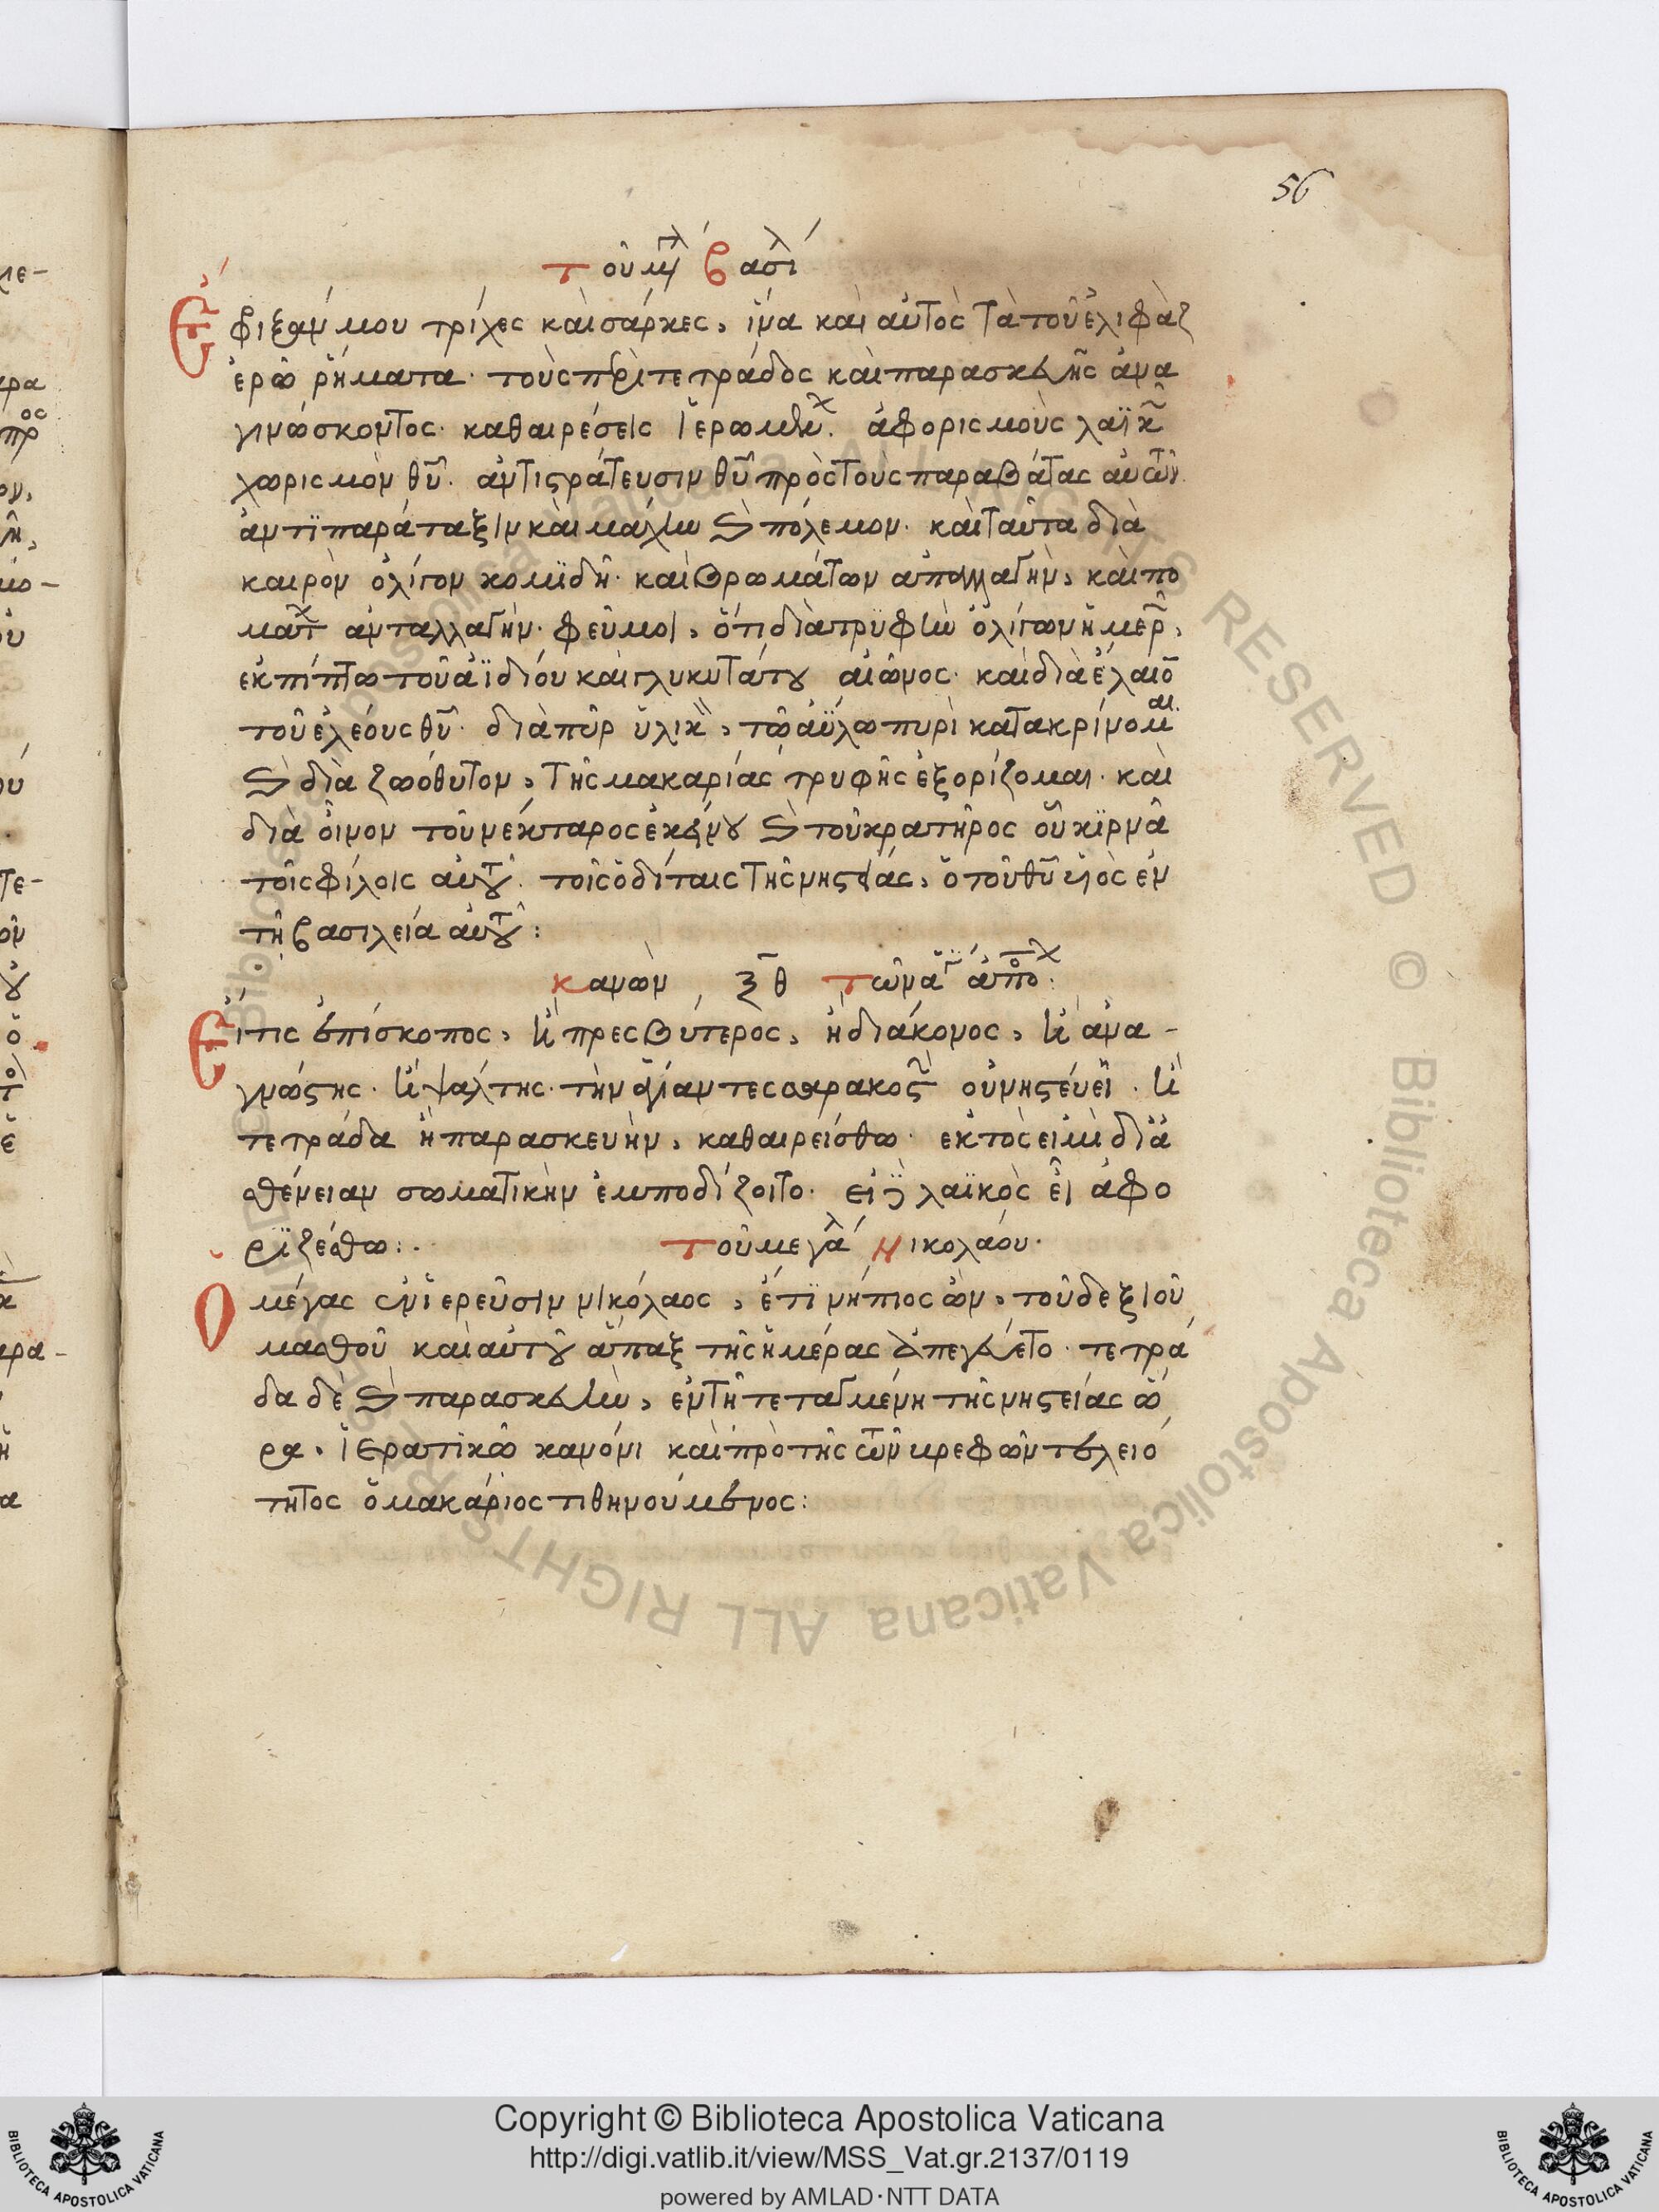 56
τοῦ μ βασι
Ἔφριξάν μου τρίχες καὶ σάρκες, ἵνα καὶ αὐτὸς τὰ τοῦ ἐλιφὰζ
ἐρῶ ῥήματα· τοὺς περὶ τετράδος καὶ παρασκευῆς ἀνα
γινώσκοντος· καθαιρέσεις ἱερωμεν. ἀφορισμοὺς λαϊκ
χωρισμὸν θυ. ἀντιστράτευσιν θυ πρὸς τοὺς παραβάτας αὐτῶν.
ἀντιπαράταξιν καὶ μάχην καὶ πόλεμον· καὶ ταῦτα διὰ
καιρὸν ὀλίγον κομϊδῆ· καὶ βρωμάτων ἀπαλλαγὴν, καὶ πο
μάτ ἀνταλλαγήν· φεῦ μοι, ὅτι διὰ τρυφὴν ὀλίγων ἡμερ,
ἐκπίπτω τοῦ ἀϊδίου καὶ γλυκυτάτου αἰῶνος· καὶ διὰ ἔλαιον
τοῦ ἐλέους θυ· διὰ πῦρ ὑλικ, τῶ ἀΰλω πυρὶ κατακρίνομαι.
καὶ διὰ ζωόθυτον, τῆς μακαρίας τρυφῆς ἐξορίζομαι· καὶ
διὰ οἶνον τοῦ νέκταρος ἐκείνου καὶ τοῦ κρατῆρος οὗ κϊρνᾶ
τοῖς φίλοις αὐτοῦ. τοῖς ὁδίταις τῆς νηστείας, ὁ τοῦ θυ υἱὸς ἐν
τῆ βασιλεία αὐτοῦ:
κανὼν ξθ τῶν ἁγ ἀποστ:
Εἴτις ἐπίσκοπος, ἢ πρεσβύτερος, ἢ διάκονος, ἢ ἀνα-
γνώστης. ἢ ψάλτης· τὴν ἁγίαν τεσσαρακοστ οὐ νηστεύει. ἢ
τετράδα ἢ παρασκευὴν, καθαιρείσθω· ἐκτὸς εἰμὴ διὰ
ἀσθένειαν σωματικὴν ἐμποδίζοιτο· εἰ δὲ λαϊκὸς εἴ ἀφο
ρϊζέσθω:. τοῦ μεγά νικολάου.
Ὁ μέγας ἐν ἱερεῦσιν νικόλαος, ἔτι νήπιος ὢν, τοῦ δεξιοῦ
μασθοῦ καὶ αὐτοῦ ἅπαξ τῆς ἡμέρας ἀπεγεύετο· τετρά
δα δὲ καὶ παρασκευὴν, ἐν τῆ τεταγμένη τῆς νηστείας ὥ
ρα. ἱερατικῶ κανόνι καὶ πρὸ τῆς τῶν βρεφῶν τελειό
τητος ὁ μακάριος τιθηνούμενος:
Copyright © Biblioteca Apostolica Vaticana
http://digi.vatlib.it/view/MSS_Vat.gr.2137/0119
powered by AMLAD·NTT DATA
BIBLIOTECA APOSTOLICA VATICANA
BIBLIOTECA APOSTOLICA VATICANA
Biblioteca Apostolica Vaticana ALL RIGHTS RESERVED ©